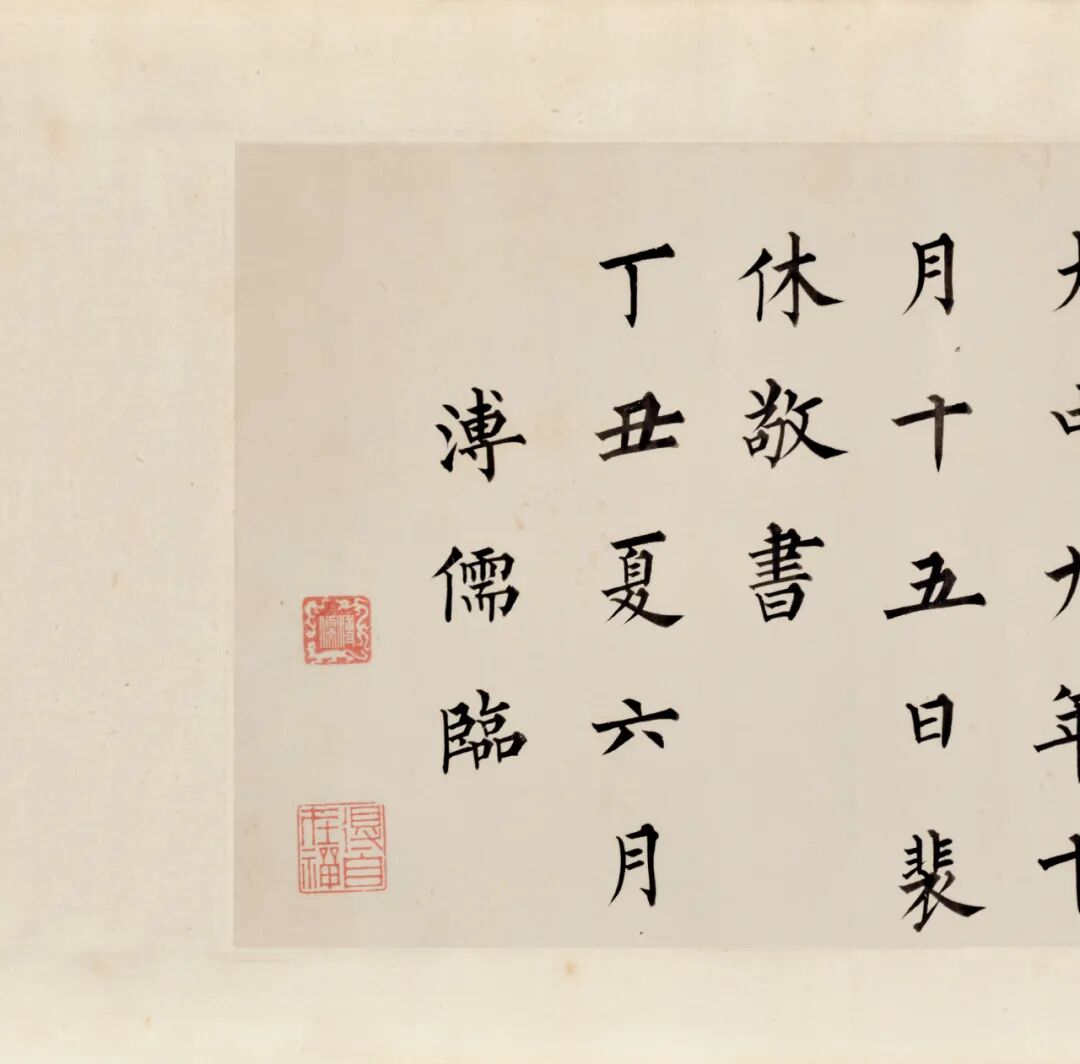 大中九年十
月十五日裴
休敬書
丁丑夏六月
溥儒臨
溥儒
得自在福